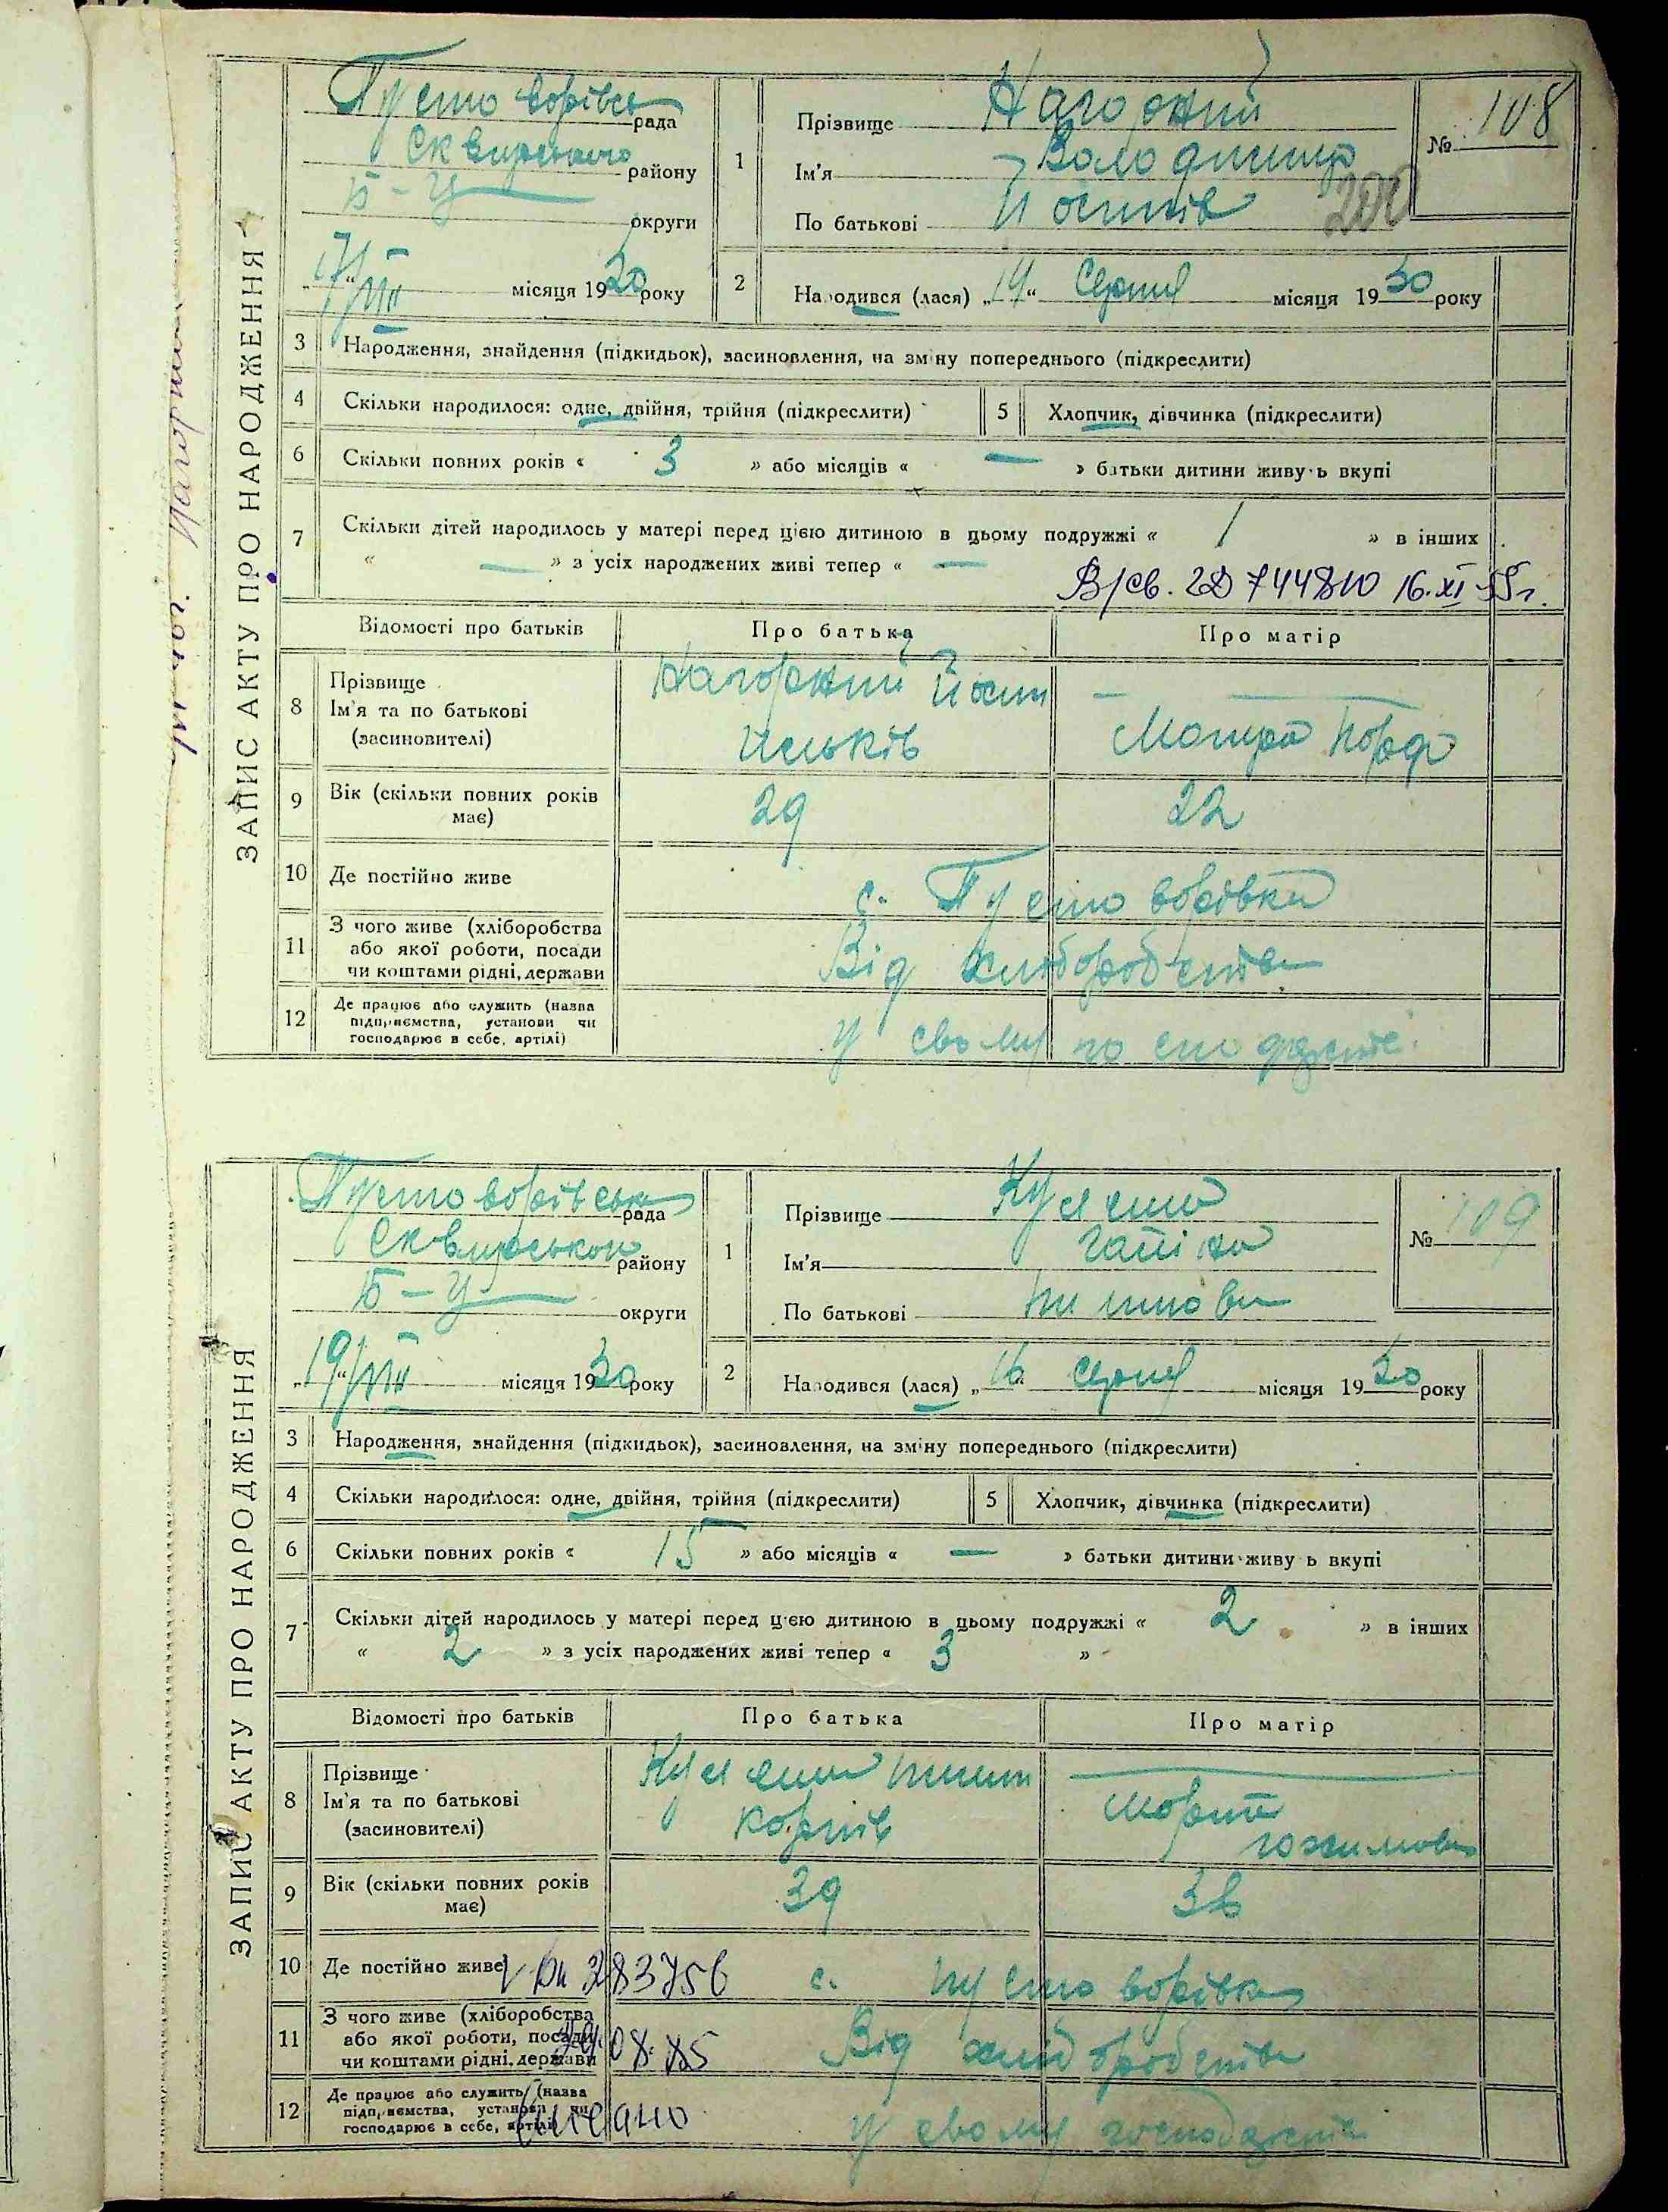 ЗАПИС АКТУ ПРО НАРОДЖЕННЯ
Пустоворівськ рада
Сквирського району
Б-Ц округи
„17“ VIII місяця 1930 року
1
Прізвище Нагорний
Ім'я Володимир
По батькові Йосипів
№ 108
200
2
Народився (лася) „14“ Серпня місяця 1930 року
3 Народження, знайдення (підкидьок), засиновлення, на зміну попереднього (підкреслити)
4 Скільки народилося: одне, двійня, трійня (підкреслити) 5 Хлопчик, дівчинка (підкреслити)
6 Скільки повних років « 3 » або місяців « — » батьки дитини живуть вкупі
7 Скільки дітей народилось у матері перед цією дитиною в цьому подружжі « 1 » в інших
« — » з усіх народжених живі тепер « —
В/св. 744810 16.XI-55г.
Відомості про батьків Про батька Про матір
8 Прізвище
Ім'я та по батькові
(засиновителі)
Нагорний Йосип
Ицьків
9 Вік (скільки повних років має) 29 22
10 Де постійно живе с. Пустоворівка
11 З чого живе (хліборобства або якої роботи, посади чи коштами рідні, держави Від хліборобства
12 Де працює або служить (назва підприємства, установи чи господарює в себе, артілі) у свому господарстві
ЗАПИС АКТУ ПРО НАРОДЖЕННЯ
Пустоворівська рада
Сквирського району
Б-Ц округи
„19“ VIII місяця 1930 року
1
Прізвище
Ім'я
По батькові
№ 109
2
Народився (лася) „16“ серпня місяця 1930 року
3 Народження, знайдення (підкидьок), засиновлення, на зміну попереднього (підкреслити)
4 Скільки народилося: одне, двійня, трійня (підкреслити) 5 Хлопчик, дівчинка (підкреслити)
6 Скільки повних років « 15 » або місяців « — » батьки дитини живуть вкупі
7 Скільки дітей народилось у матері перед цією дитиною в цьому подружжі « 2 » в інших
« 2 » з усіх народжених живі тепер « 3 »
Відомості про батьків Про батька Про матір
8 Прізвище
Ім'я та по батькові
(засиновителі)
Корнів
9 Вік (скільки повних років має) 39
10 Де постійно живе с. Пустоворівка
11 З чого живе (хліборобства або якої роботи, посади чи коштами рідні, держави Від хліборобства
08.85
12 Де працює або служить (назва підприємства, установи чи господарює в себе, артілі) у свому господарстві